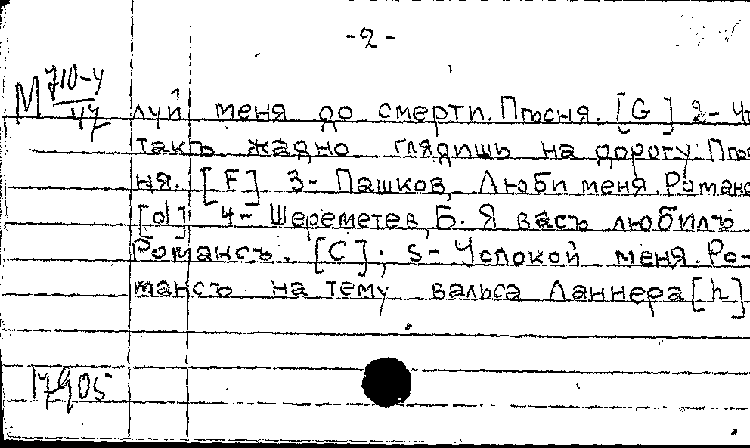 -2-
М 710-4
47
луй меня до смерти. Пѣсня. [G] 2- Чт
такъ жадно глядишь на дорогу. Пѣс
ня. [F] 3- Пашков, Люби меня. Романс
[d] 4- Шереметев, Б. Я васъ любилъ
Романсъ. [C]; 5- Успокой меня. Ро-
мансъ на тему вальса Ланнера [h]
17905